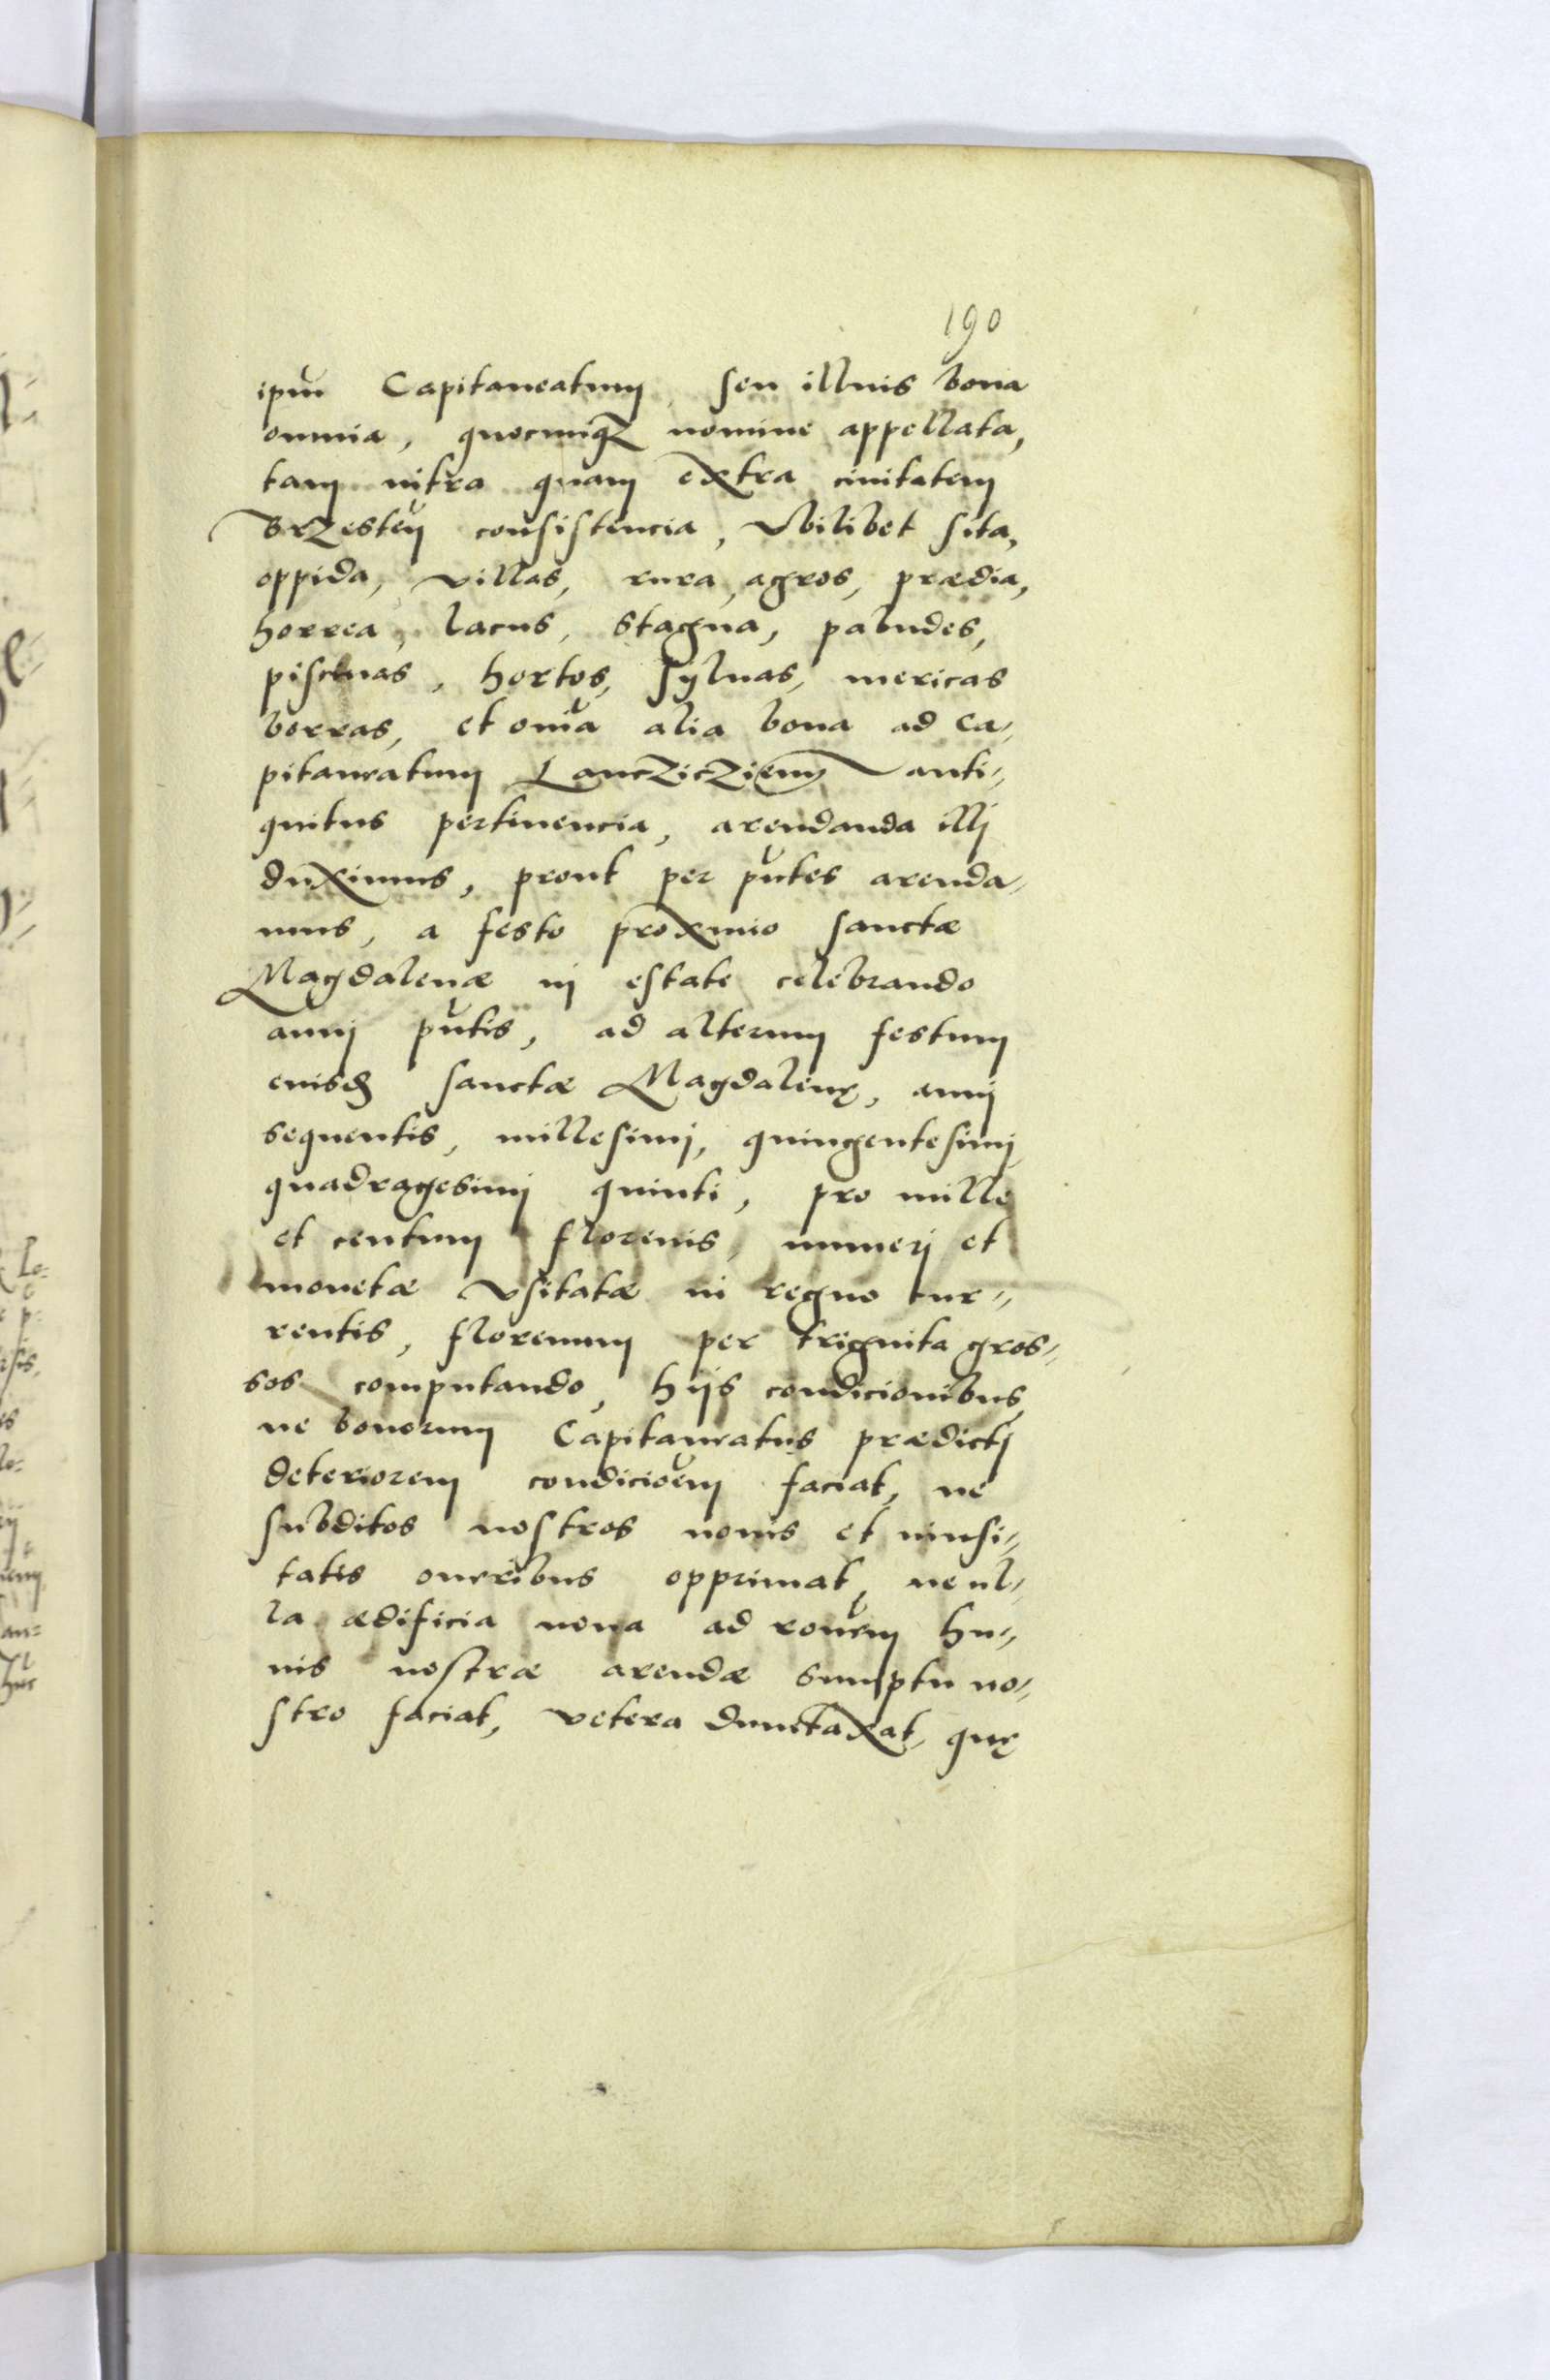 190
ipm̃ Capitaneatum, seu illius bona
omnia, quocunqꝫ nomine appellata,
tam intra quam extra ciuitatem
Brzesteñ consistencia, vbilibet sita,
oppida, villas, rura, agros, prædia,
horrea, lacus, stagna, paludes,
piscinas, hortos, syluas, mericas
borras, et om̃ia alia bona ad ca-
pitaneatum Lancziczieñ anti-
quitus pertinencia, arendanda illj
duximus, prout per pñtes arenda-
mus, a festo proximo sanctæ
Magdalenæ in estate celebrando
annj pñtis, ad alterum festum
eiusd. sanctæ Magdalenę, annj
sequentis, millesimj, quingentesimj
quadragesimj quinti, pro mille
et centum florenis, numerj et
monetæ vsitatæ in regno cur-
rentis, florenum per triginta gros-
sos computando, hijs condicionibus,
ne bonorum Capitaneatus prædictj
deteriorem condicioẽm faciat, ne
subditos nostros nouis et inusi-
tatis oneribus opprimat, ne ul-
la ædificia noua ad roñem hu-
ius nostræ arendæ sumptu no-
stro faciat, vetera dumtaxat, quę